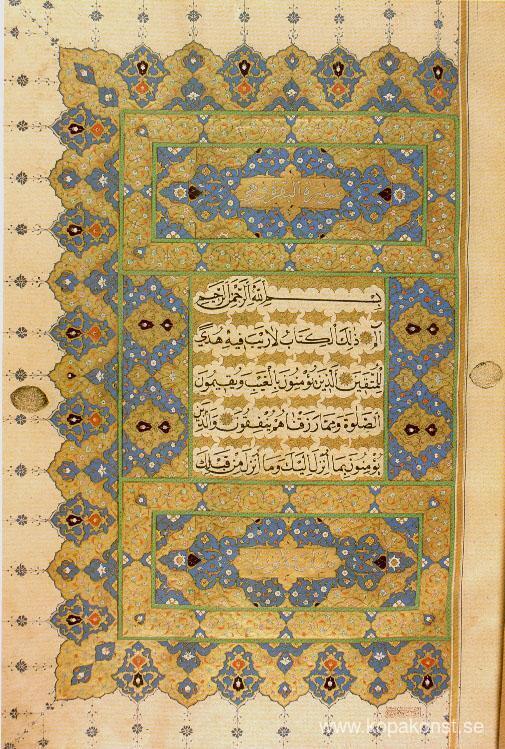 سورة البقرة
بِسْمِ اللَّهِ الرَّحْمَٰنِ الرَّحِيمِ
الٓمٓ ذَٰلِكَ الْكِتَابُ لَا رَيْبَ فِيهِ هُدًى
لِلْمُتَّقِينَ الَّذِينَ يُؤْمِنُونَ بِالْغَيْبِ وَيُقِيمُونَ
الصَّلٰوةَ وَمِمَّا رَزَقْنَاهُمْ يُنْفِقُونَ وَالَّذِينَ
يُؤْمِنُونَ بِمَا أُنْزِلَ إِلَيْكَ وَمَا أُنْزِلَ مِنْ قَبْلِكَ
www.kopakonst.se